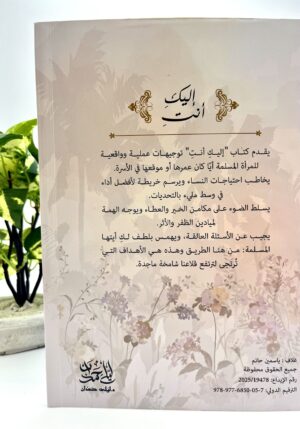 إليكِ
أنتِ
يقدم كتاب "إليكِ أنتِ" توجيهات عملية وواقعية
للمرأة المسلمة أيًّا كان عمرها أو موقعها في الأسرة.
يخاطب احتياجات النساء ويرسم خريطة لأفضل أداء
في وسط مليء بالتحديات.
يسلط الضوء على مكامن الخير والعطاء ويوجه الهمة
لميادين الظفر والأثر.
يجيب عن الأسئلة العالقة، ويهمس بلطف لكِ أيتها
المسلمة: من هنا الطريق وهذه هي الأهداف التي
تُرتجى لترتفع قلاعنا شامخة ماجدة.
غلاف: ياسمين حاتم
جميع الحقوق محفوظة
رقم الإيداع: 2025/19478
الترقيم الدولي: 7-05-6850-977-978